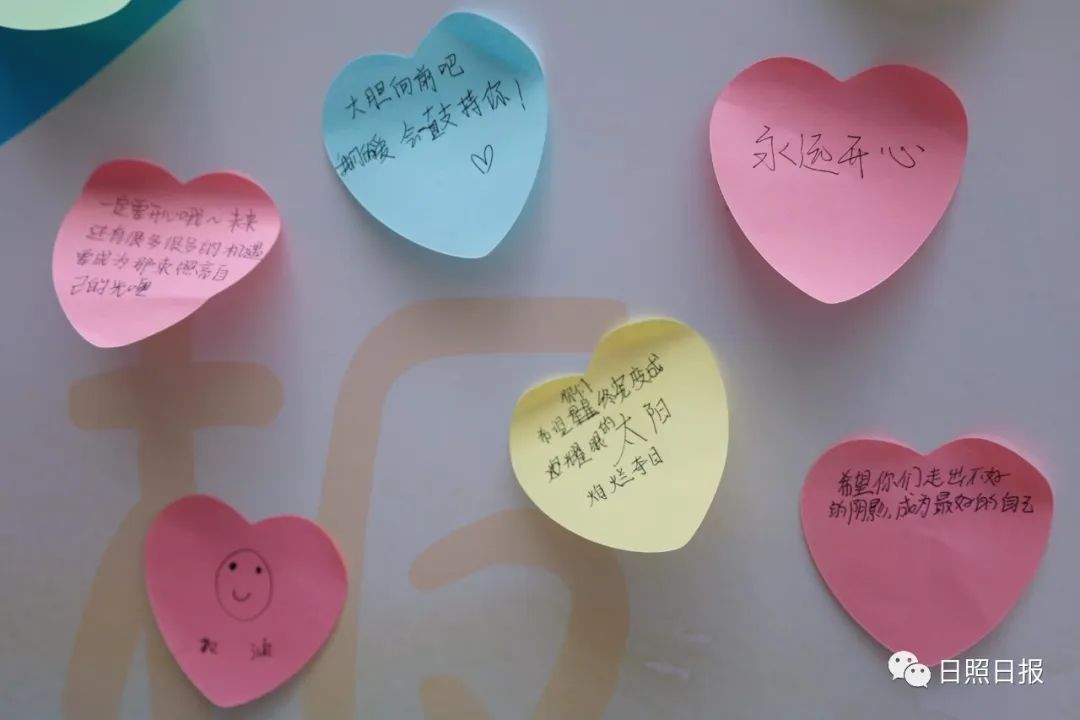 大胆向前吧
我们的爱会一直支持你!
永远开心
一定要开心哦~未来
还有很多很多的机遇
要成为那束照亮自
己的光哩
你们
希望星星终究变成
耀眼的太阳
灿烂夺目
希望你们走出不好
的阴影,成为最好的自己
加油
日照日报